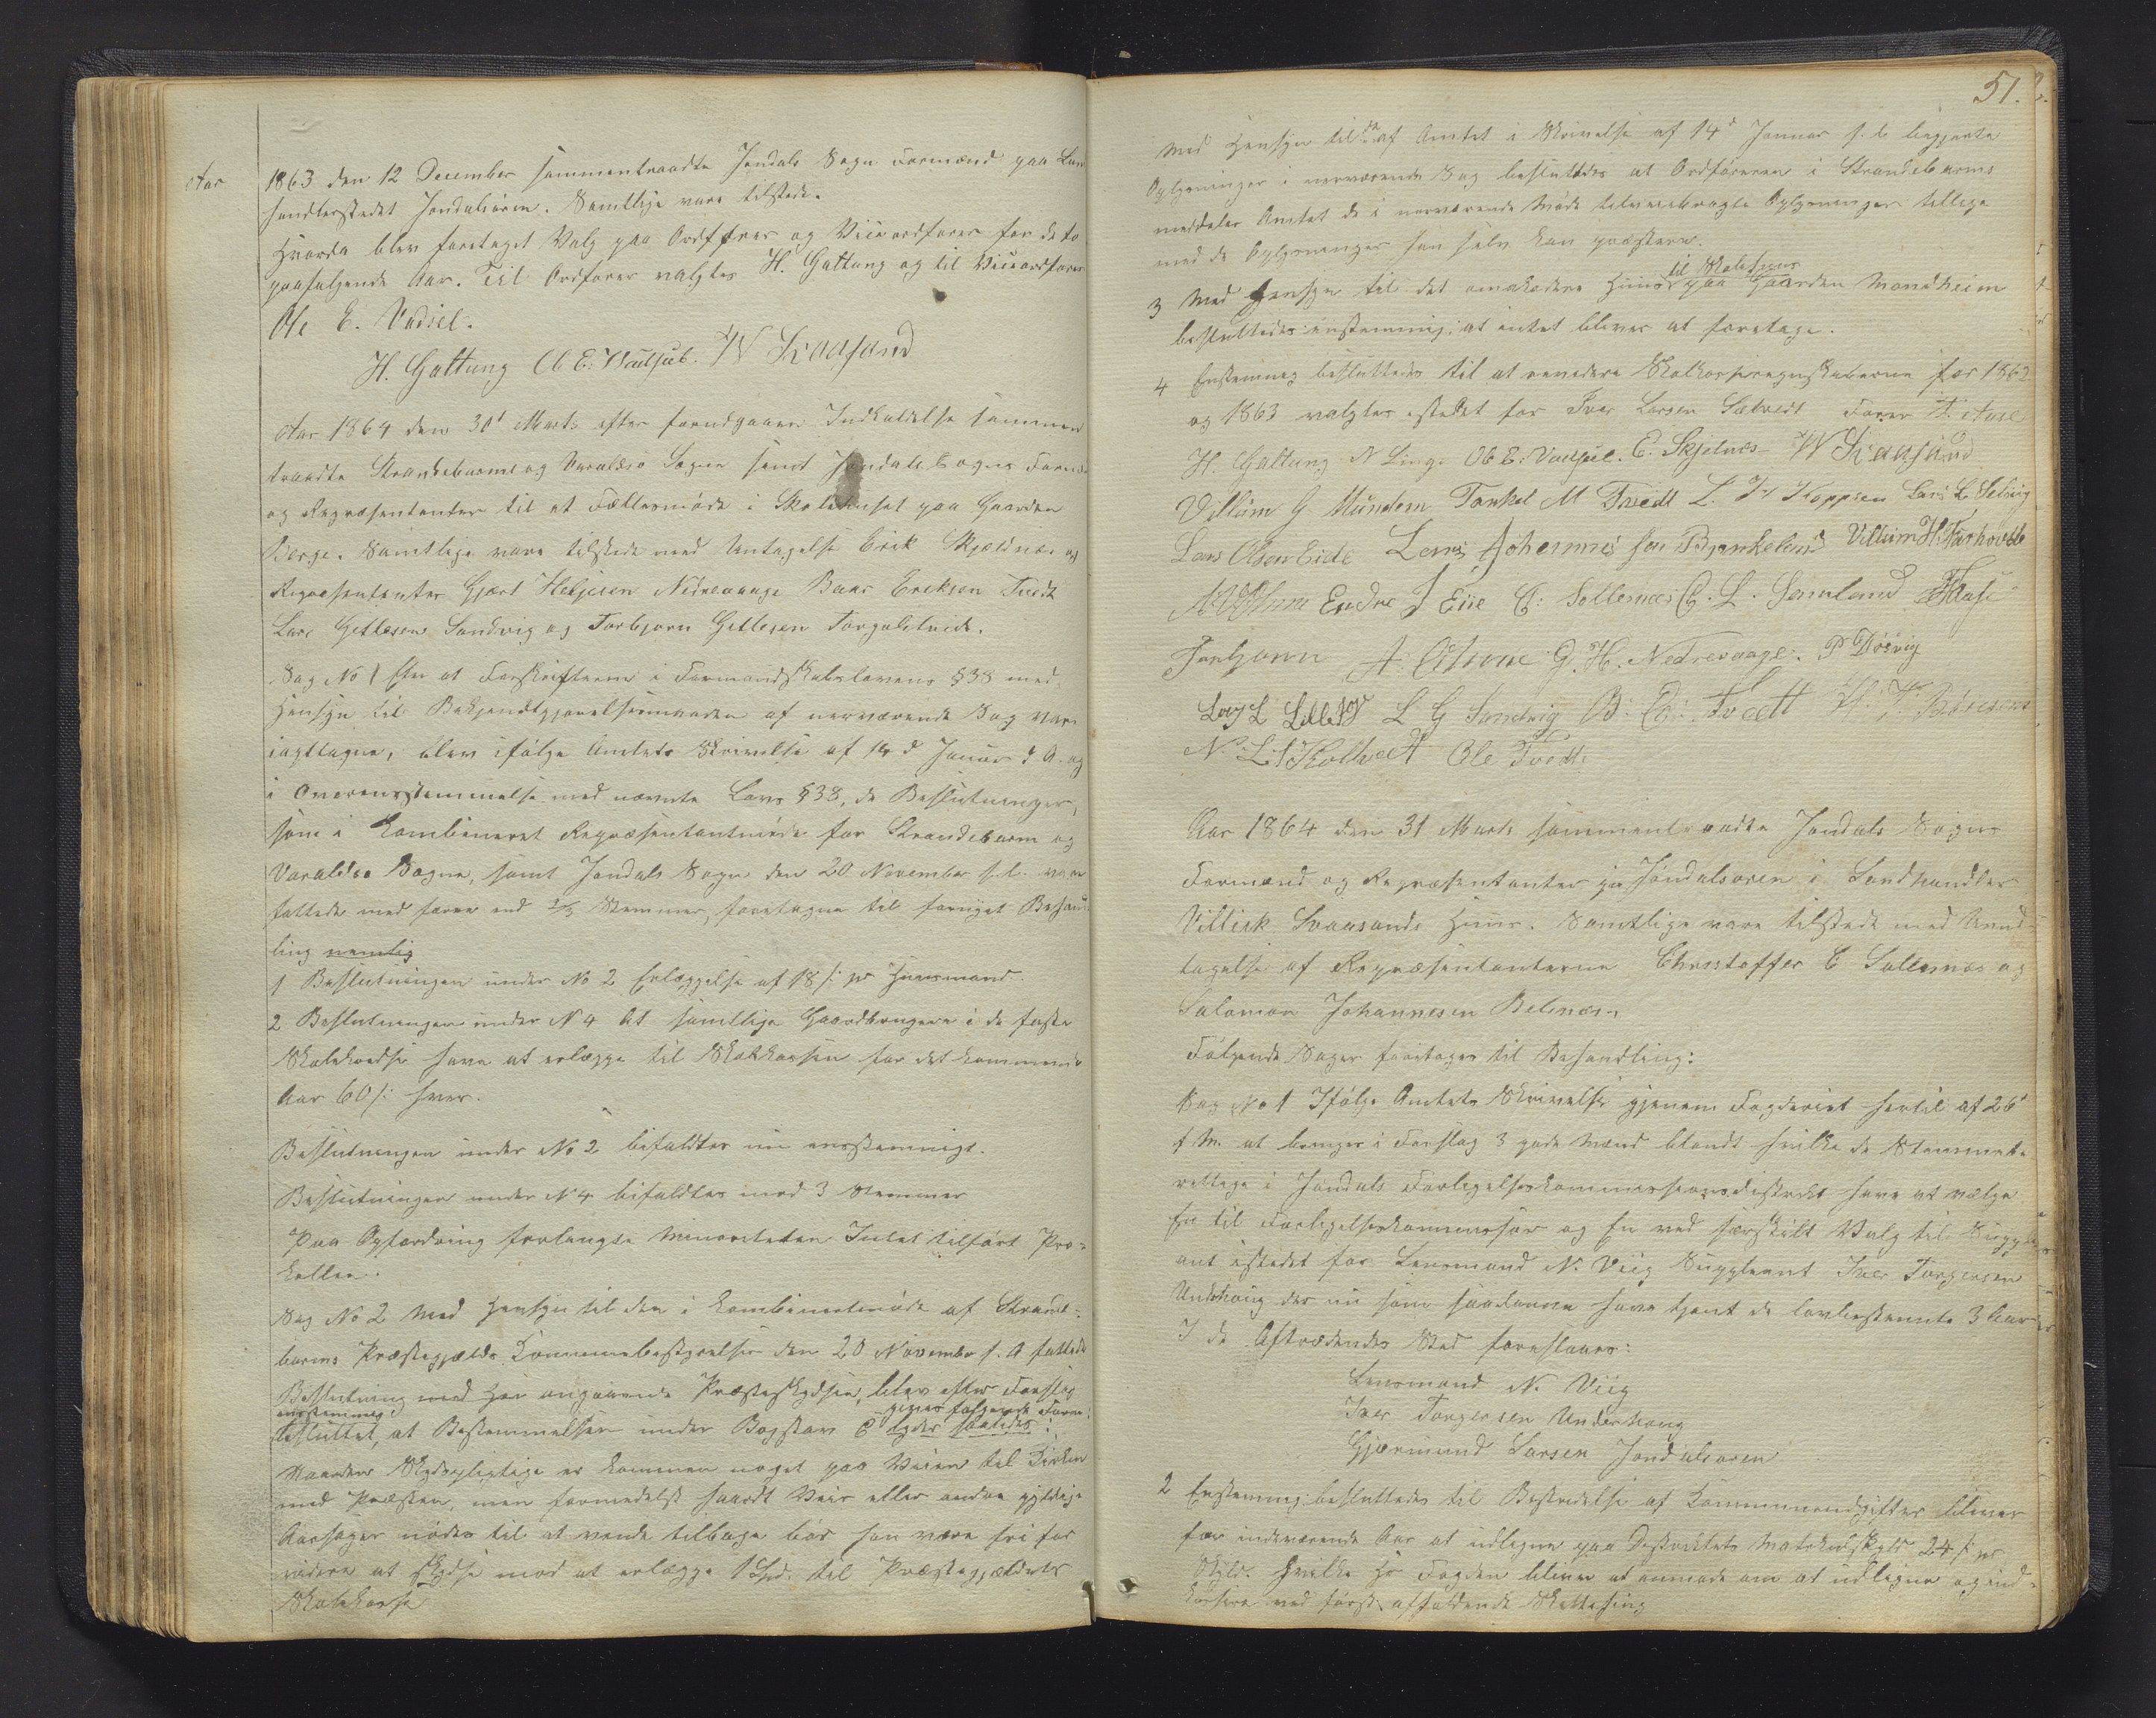 Aar 1863 den 12 December sammentraadte Jondals Sogns Formænd paa Lan
handlerstedet Jondalsøren. Samtlige vare tilstede.
Hvorda blev foretaget Valg paa Ordfører og Viceordfører for de to
paafølgende Aar. Til Ordfører valgtes H. Galtung og til Viceordfører
Ole E. Vadsel.
H. Galtung Ole E: Vadsel. W Svaasand
Aar 1864 den 30' Marts efter forudgaaen Indkaldelse sammen
traadte Strandebarms og Varaldsø Sogns samt Jondals Sogns Form:
og Repræsentanter til et Fællesmøde i Skolehuset paa Gaarden
Berge. Samtlige vare tilstede med Untagelse Erick Skjeldnæs og
Repræsentanter Gjert Helgesen Nedrevaage Baar Ericksen Tvedt
Lars Getlesen Sandvig og Torbjørn Gitlesen
Sag No 1 Efter at Forskrifterne i Formandskabslovens § 38 med
Hensyn til Bekjendtgjørelsesmaaden af nærværende Sag vare
iagttagne, blev ifølge Amtets Skrivelse af 14 d Januar d A. og
i Overensstemmelse med nævnte Lovs § 38, de Beslutninger,
som i kombineret Repræsentantmøde for Strandebarm og
Varaldsø Sogne, samt Jondals Sogn den 20 November f. A. vare
fattede med færre end 2/3 Stemmer, foretagne til fornyet Behand
ling nemlig
1 Beslutningen under No 2 Erlæggelse af 18 /: pr Huusmand
2 Beslutningen under N 4 At samtlige Gaardbrugere i de faste
Skolekredse have at erlægge til Skolekassen for det kommende
Aar 60 /: hver.
Beslutningen under No 2 bifaldtes nu eenstemmigt.
Beslutningen under N 4 bifaldtes mod 3 Stemmer
Paa Opfordring forlangte Minoriteten Intet tilført Pro=
kollen.
Sag No 2 Med Hensyn til den i kombineretmøde af Strande=
barms Præstegjelds Kommunebestyrelse den 20 November f. A fattede
Beslutning med Hen angaaende Præsteskydsen, blev efter Forslag
eenstemmig gives følgende Form:
besluttet, at Bestemmelsen under Bogstav C lyder saaledes:
Naarden Skydspligtige er kommen noget paa Veien til Kirken
med Præsten, men formedelst haardt Veir eller andre gyldige
Aarsager nødes til at vende tilbage bør han være fri for
videre at skydse mod at erlægge 1 Spd. til Præstegjældets
Skolekasse
51.
Med Hensyn til de af Amtet i Skrivelse af 14d Januar s. l. begjærte
Oplysninger i nærværende Sag besluttedes at Ordføreren i Strandebarms
meddeler Amtet de i nærværende Møde tilveiebragte Oplysninger tillige
med de Oplysninger han selv kan præstere.
til Skolehuus
3 Med Hensyn til det omakedere Huus paa Gaarden Mondheim
besluttedes eenstemmig: at intet bliver at foretage.
4 Enstemmig besluttedes til at revidere Skolekasseregnskaberne for 1862
og 1863 valgtes istedet for Iver Larsen Sætveit Fører T. Aase
H. Galtung N Linge Ole E. Vadsel. E. Skjelnæs W Svaasand
Villum G Mundem Torkel M Tvedt L. Kopperen Lars L. Selsvig
Lars Olsen Eide Lars Johannis sen Bjankelund Villum H.
Endre J Eie C: Sollesnæs C. L. Samland T Aase
Torbjørn A. G. H. Nedrevaage. P Døsvig
Lars L Lilletv L G Sandvig B: Er: Tvedt
N. L. Kolltveit Ole Tvedt.
Aar 1864 den 31 Marts sammentraadte Jondals Sogns
Formænd og Repræsentanter paa Jondalsøren i Landhandler
Villick Svaasands Huus. Samtlige vare tilstede med Und
tagelse af Repræsentanterne Christoffer C Sollesnæs og
Salomon Johannesen Belsnæs.
Følgende Sager foretages til Behandling:
Sag No 1 Ifølge Amtets Skrivelse gjenem Fogderiet hertil af 26'
f M. at bringes i Forslag 3 gode Mænd blandt hvilke de Stemmebe
rettige i Jondals Forligelseskommissionsdistrikt have at vælge
En til Forligelseskommissær og En ved særskilt Valg til Supple
ant istedet for Lensmand N. Viig Suppleant Iver Torgersen
Underhaug der nu som saadanne have tjent de lovbestemte 3 Aar
I de Aftrædendes Sted foreslaaes:
Lensmand N. Viig
Iver Torgersen Underhaug
Gjermund Larsen Jondalsøren
2 Enstemmig besluttedes til Bestridelse af Kommuneudgifter bliver
for indeværende Aar at udligne paa Distriktets Matrikulskyld 24 /: pr
Skyld. hvilke Hr Fogden bliver at anmode om at udligne og ind=
kassere ved først afholdende Skatteting